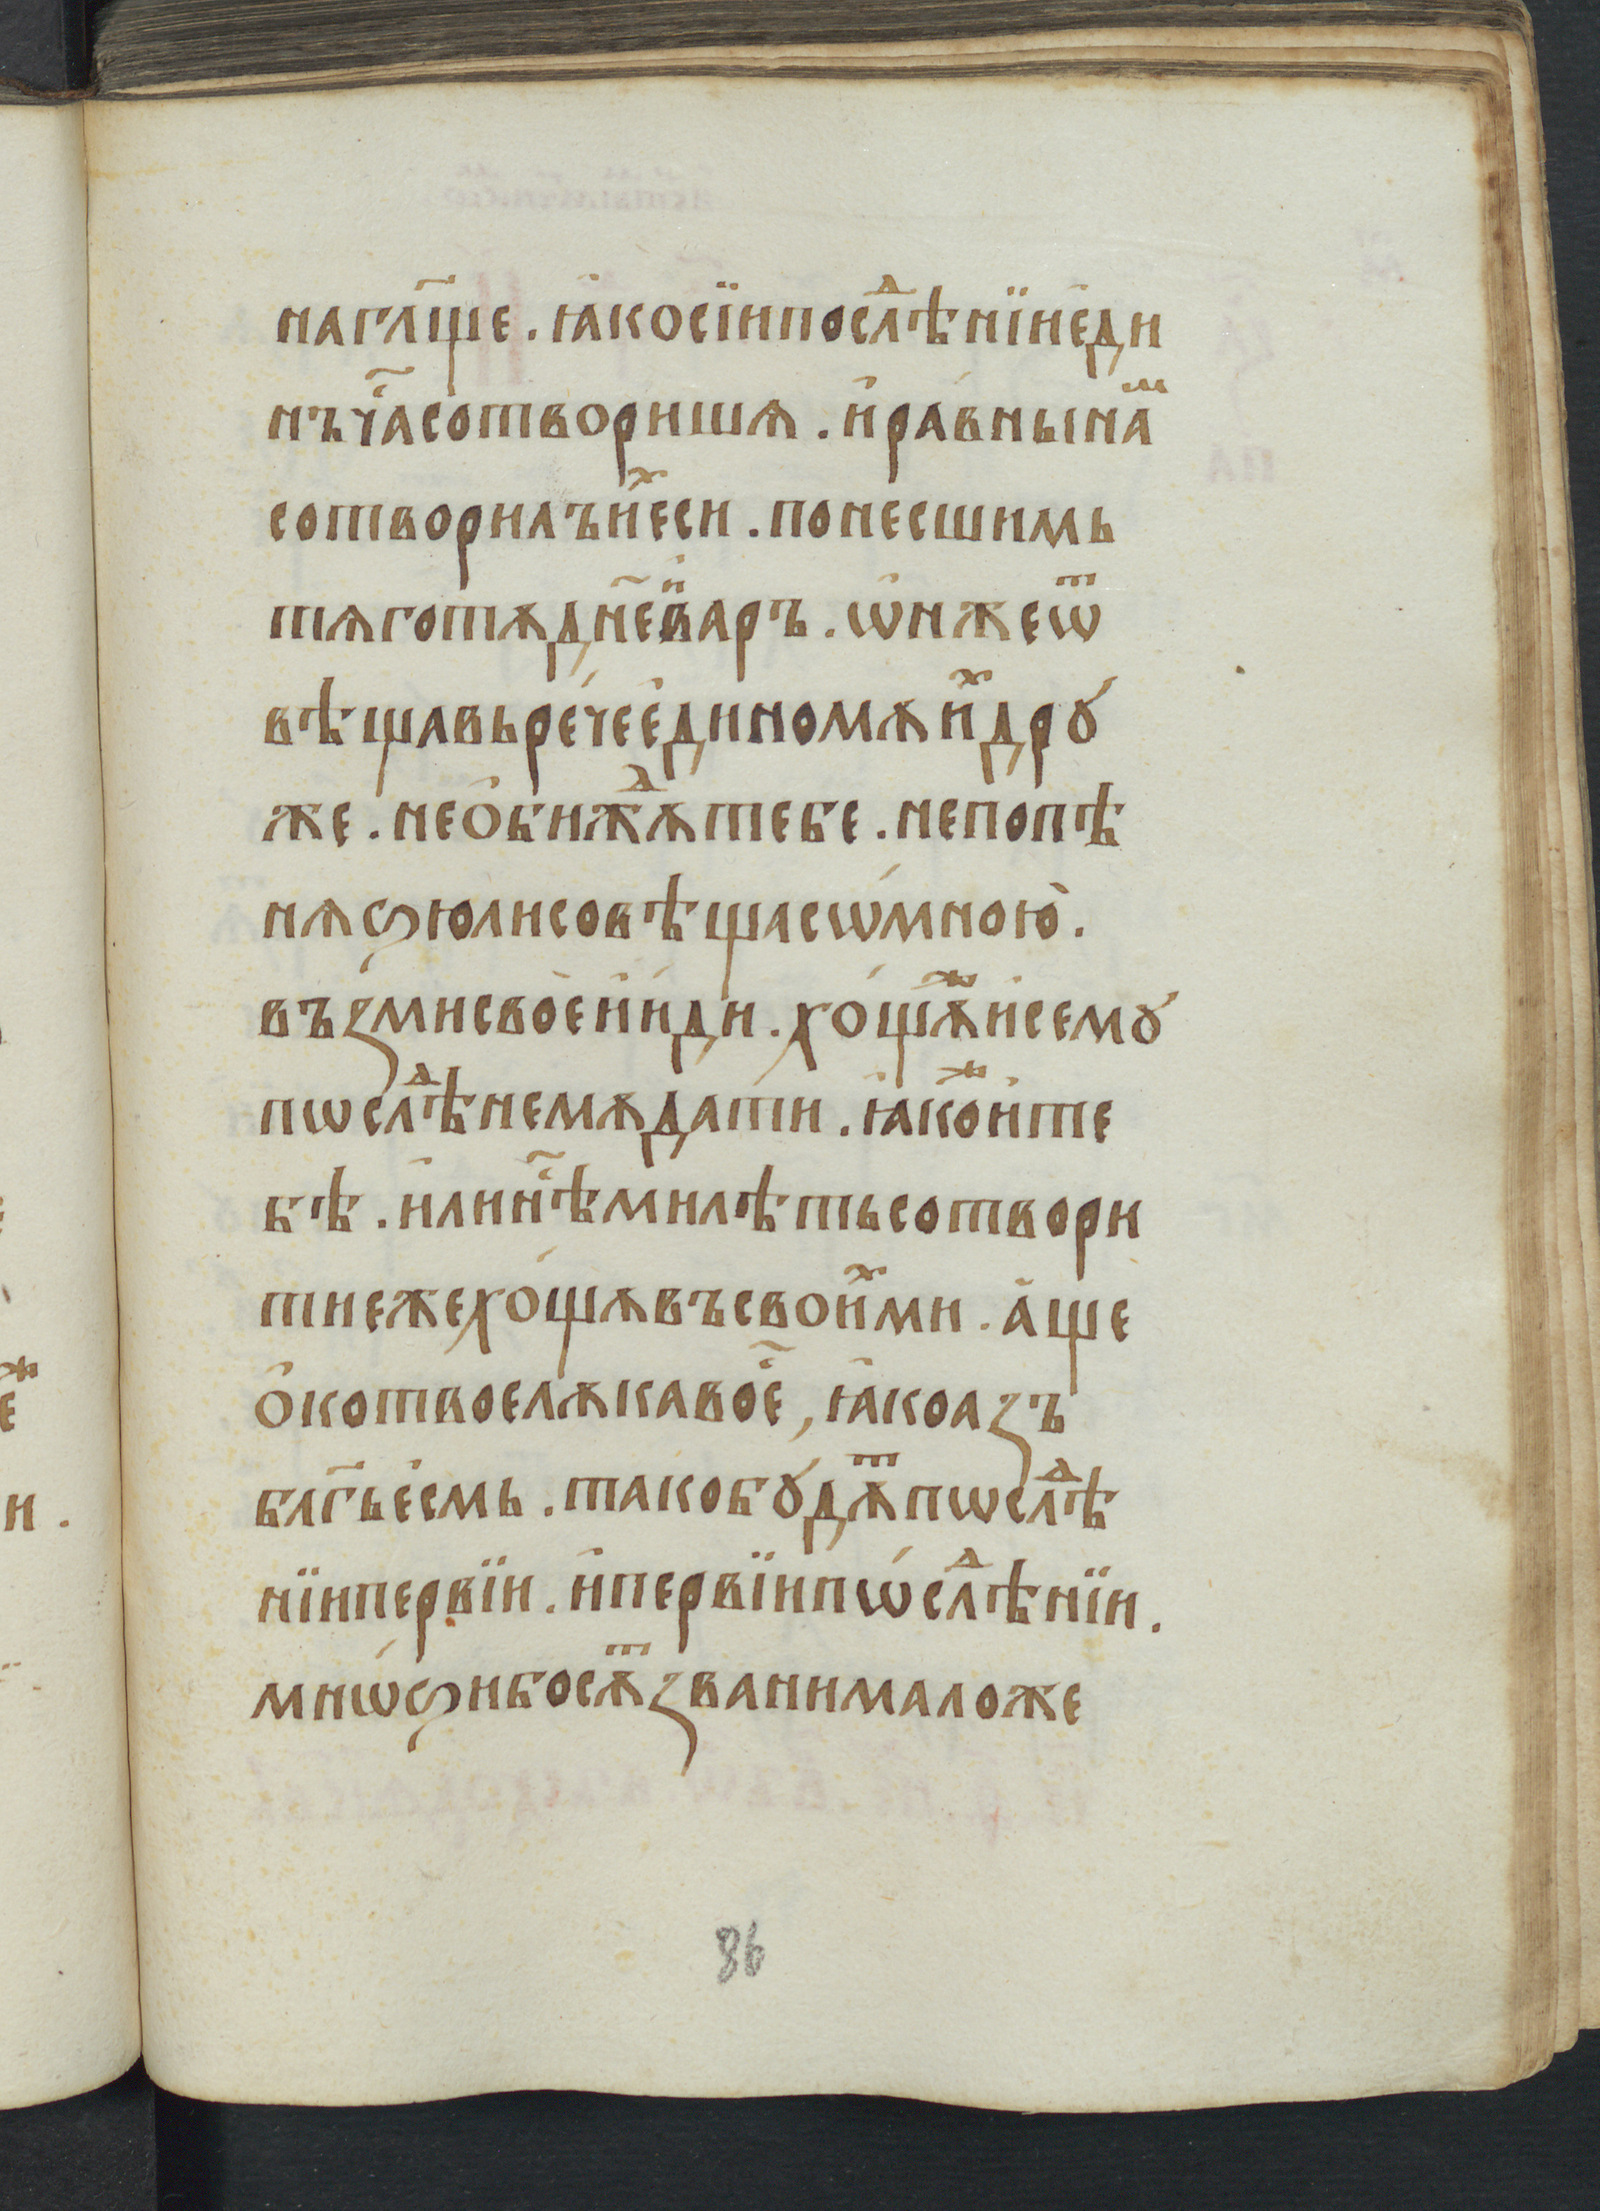 нагл҃ще . ꙗ҆косїипослⷣѣнїие҆ди
нъча҃сотворишѧ . и҆ра́внына́ⷨ
сотворилъи҆ⷯеси . понесшимь
тѧготѫдн҃еи҆варъ . ѡ҆нжеѿ
вѣщавьре́чее҆диномѫи҆ⷯдрꙋ́
же . нео҆бижⷣѫтебе . непопѣ
нѧꙃюлисовѣщасѡ́мною̀ .
въꙁмисвоѐи҆и҆ди . хо́щѫⷤи҆семꙋ́
пѡслⷣѣнемѫдати . ꙗ҆кⷤои҆те
бѣ . и҆лин҃ѣмилѣтьсотвори
тиежехо́щѫвъсвои҆ⷯми . а҆ще
о҆котвоелѫкаво҃е , ꙗ҆коаꙁъ
бл҃гье҆смь . такобꙋ́дѫⷮпѡслⷣѣ
нїипервїи . и҆первїипѡ́слⷣѣнїи .
мнѡꙃибосѫⷮꙁванималоже
86